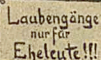 Laubengänge
nur für
Eheleute!!!